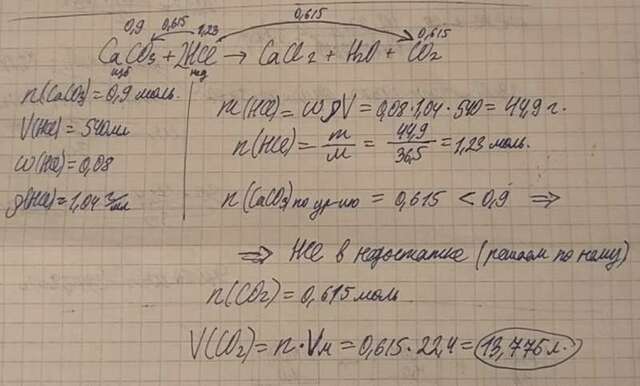 0,9 0,615 1,23 0,615 0,615
CaCO3 + 2HCl → CaCl2 + H2O + CO2
изб нед
n(CaCO3) = 0,9 моль.
V(HCl) = 540мл
w(HCl) = 0,08
ρ(HCl) = 1,04 г/мл
m(HCl) = wρV = 0,08·1,04·540 = 44,9 г.
n(HCl) = m/M = 44,9/36,5 = 1,23 моль.
n(CaCO3) по ур-ию = 0,615 < 0,9 ⇒
⇒ HCl в недостатке (решаем по нему)
n(CO2) = 0,615 моль
V(CO2) = n·Vм = 0,615·22,4 = 13,776 л.